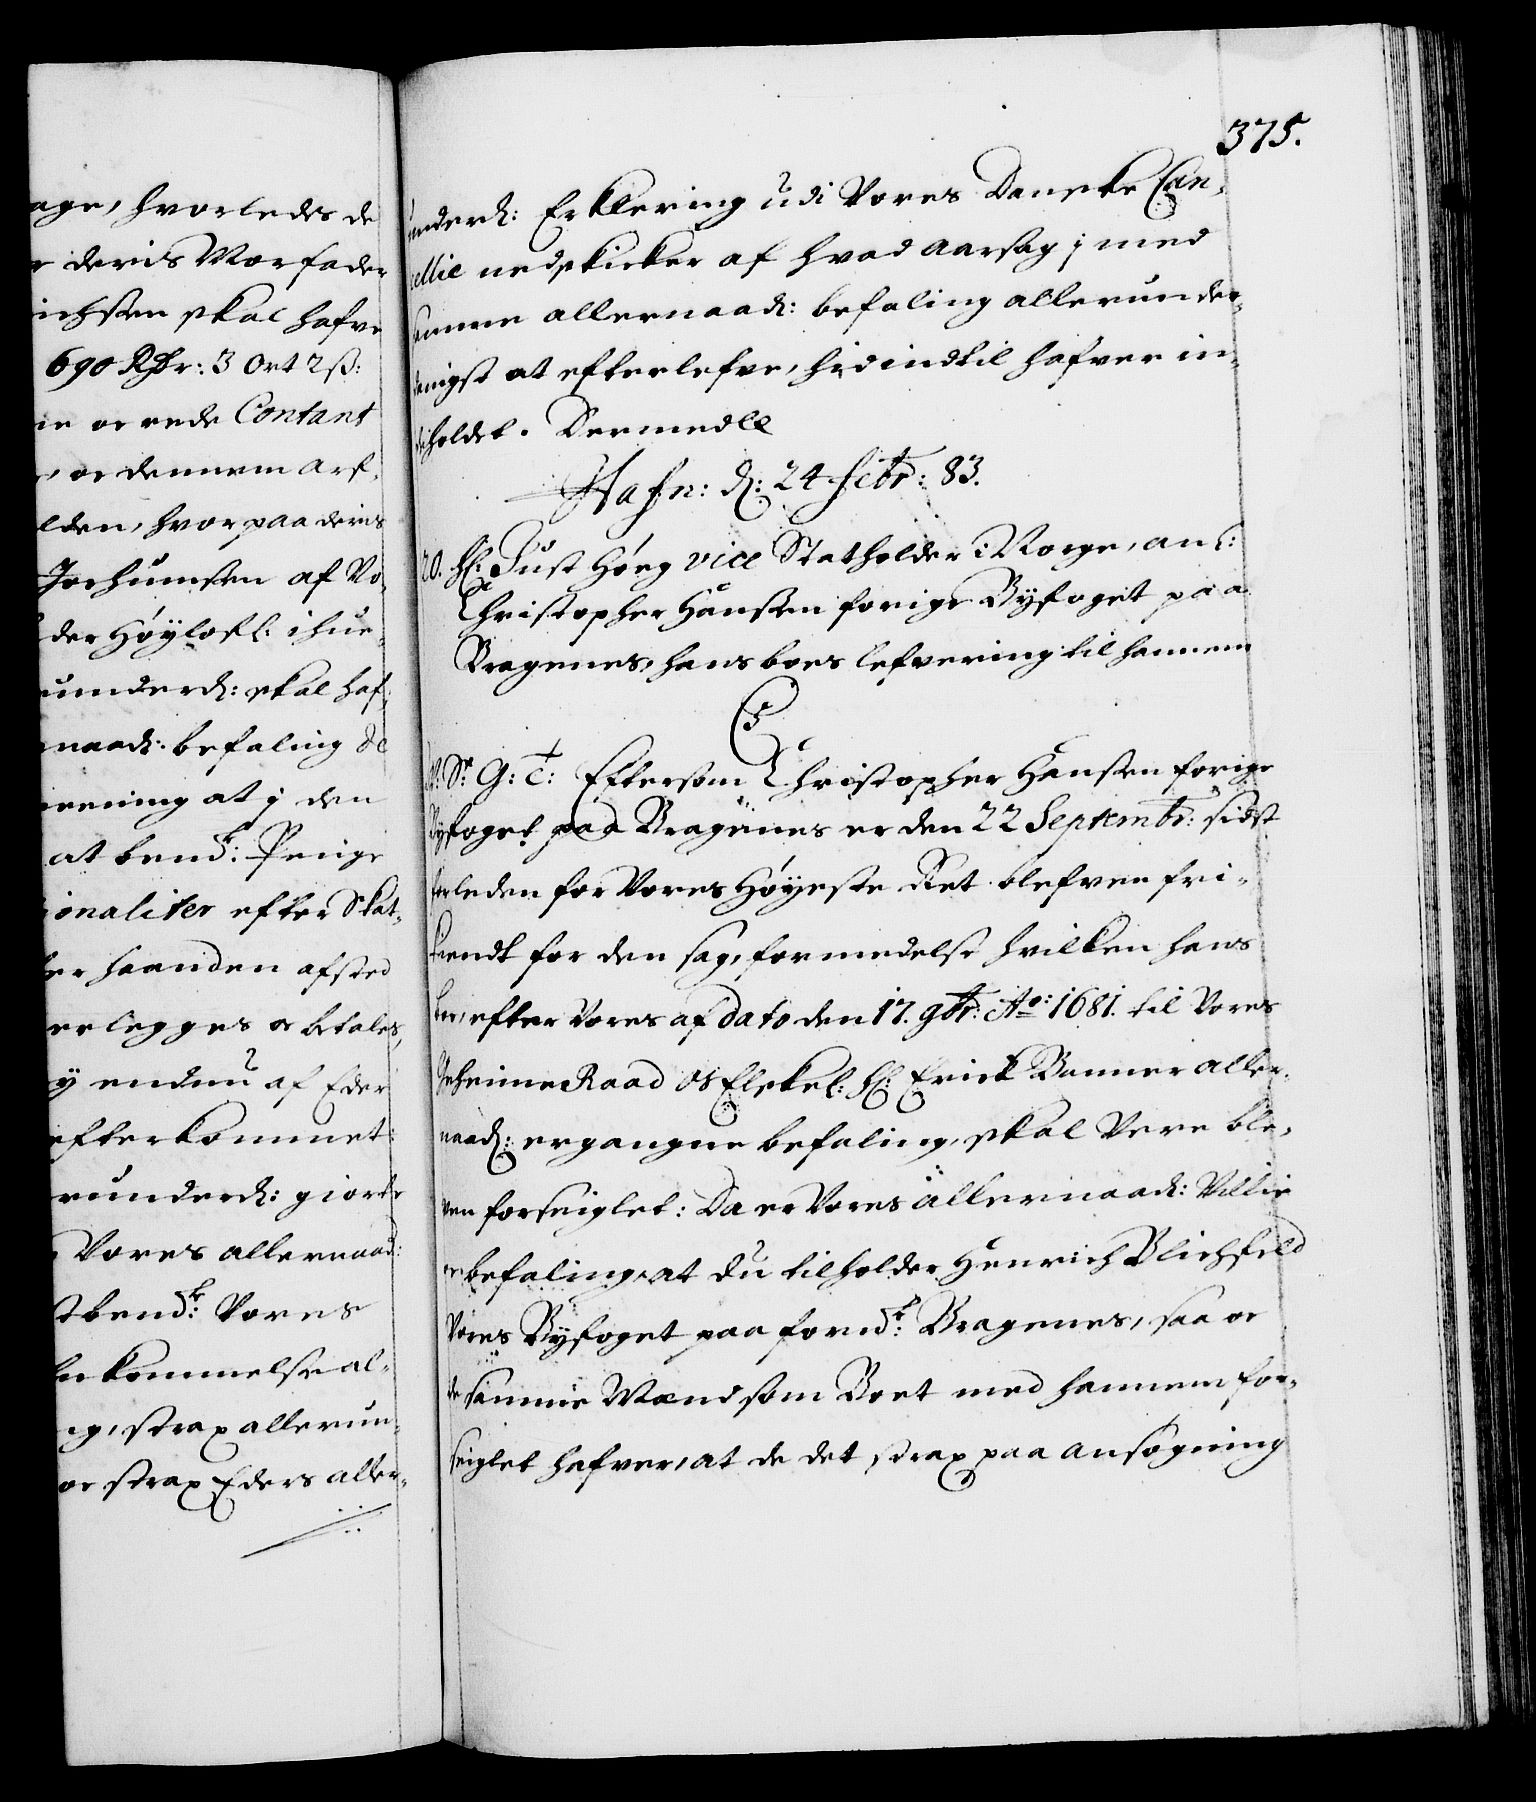 375.
age, hvorledes de
r deris Morfader
ichsen skal hafve
690 Rdr: 3 Ort 2 ß:
ie oc rede Contant
, oc dennem arf-
lden, hvor paa deris
Jochumsen af Vo-
der Høylofl: ihue-
underd: skal haf-
naad: befaling &c
meening at j den
at bemte: Penge
ionaliter efter Skat-
er haanden afsted
erlegges oc betales,
y endnu af Eder
efterkommet:
runderd: giorte
Vores allernaad:
t bemte: Vores
kommelse al-
g, strax allerun-
oc strax Eders aller-
underd: Erklering udi Vores Danske Can-
cellie nedskicker af hvad aarsag j med
samme allernaad: befaling allerunder-
danigst at efterlefve, hid indtil hafver in-
deholdet. Dermed &c
Hafn: d: 24 Octbr: 83.
20. H: Just Høeg Vice Statholder i Norge, anl:
Christopher Hansen forige Byfoget paa
Bragenes, hans boes lefvering til hannem
C5
V. S. G: T: Eftersom Christopher Hansen forige
Byfoget paa Bragenes er den 22 Septembr: sidst
forleden for Vores Høyeste Ret blefven fri-
kiendt for den sag, formedelst hvilken hans
boe, efter Vores af dato den 17. 9br: Ao: 1681. til Vores
Geheime Raad Os Elskel: H: Erick Banner aller-
naad: ergangne befaling, skal Vere ble-
ven forseiglet: Da er Vores allernaad: Villie
oc befaling, at du tilholder Henrich Blichfeld
Vores Byfoget paa fornte: Bragenes, saa oc
de samme Mænd som Boet med hannem for-
seiglet hafver, at de det strax paa ansøgning